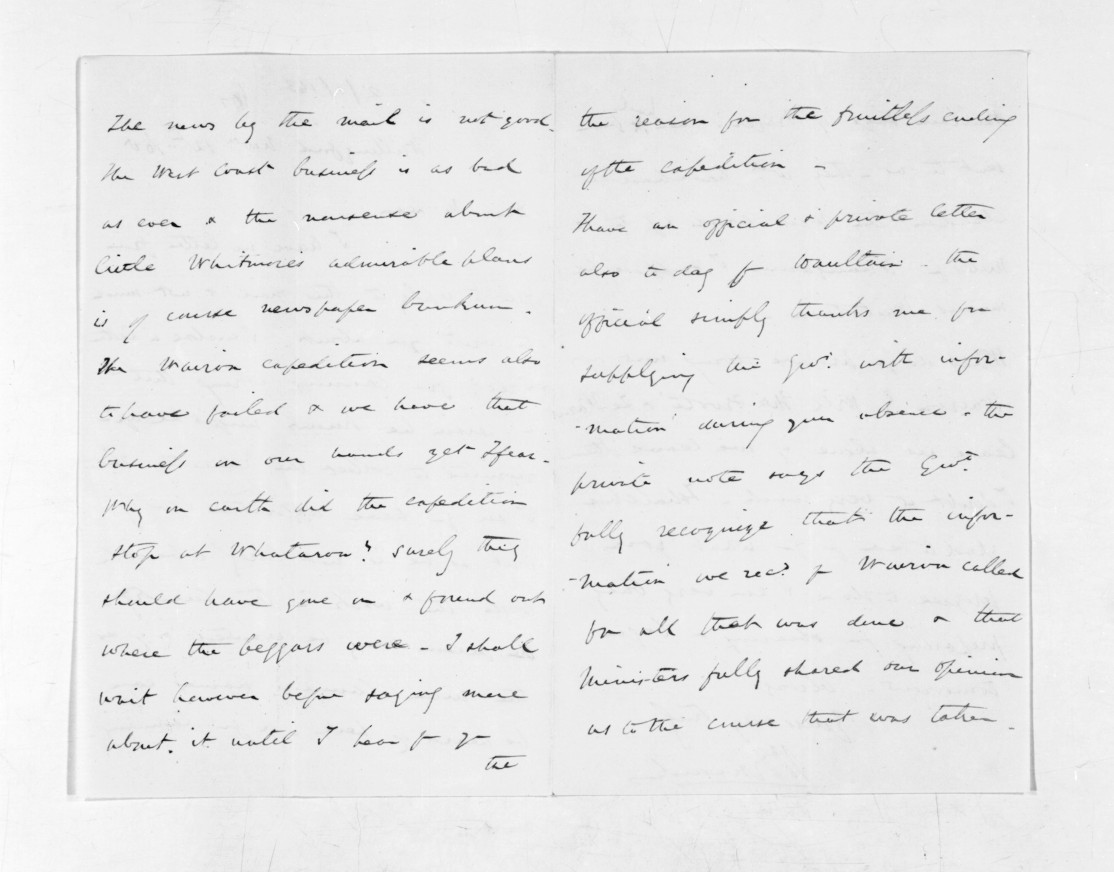 The news by the mail is not good.
The West Coast business is as bad
as ever & the nonsense about
little Whitmore's admirable plans
is of course newspaper bunkum.
The Wairoa expedition seems also
to have failed & we have that
business on our hands yet I fear.
Why on earth did the expedition
stop at Whataroa? surely they
should have gone on & found out
where the beggars were - I shall
wait however before saying more
about it until I hear f y
the
the reason for the fruitless ending
of the expedition -
I have an official & private letter
also to day f Haultain - the
official simply thanks me for
supplying the Govt. with infor-
-mation during your absence - the
private note says the Govt.
fully recognize that the infor-
-mation we recd. f Wairoa called
for all that was done & that
Ministers fully shared our opinion
as to the course that was taken.